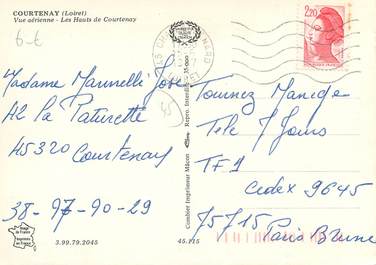 COURTENAY (Loiret)
Vue aérienne - Les Hauts de Courtenay
6-6
2,20
Madame Marinelli José
42 La Paturette
45320 Courtenay
38-97-90-29
45
Tournez Manège
Télé 7 Jours
TF1
Cedex 9645
75715 Paris Brune
Combier Imprimeur Mâcon
Repro. Interdite
35.000
3.99.79.2045
45.115